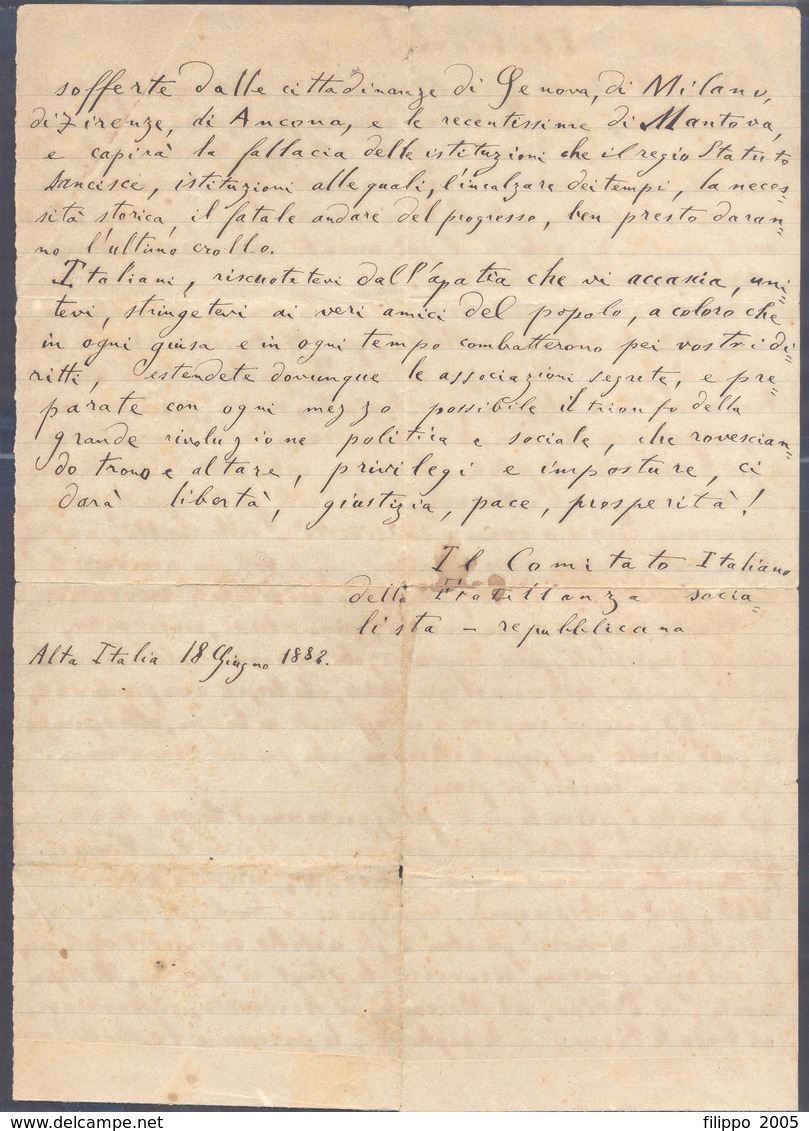 sofferte dalle cittadinanze di Genova, di Milano,
di Firenze, di Ancona, e le recentissime di Mantova,
e capirà la fallacia delle istituzioni che il regio Statuto
sancisce, istituzioni alle quali, l'incalzare dei tempi, la neces=
sità storica, il fatale andare del progresso, ben presto daran=
no l'ultimo crollo.
Italiani, riscuotetevi dall'apatia che vi accascia, uni=
tevi, stringetevi ai veri amici del popolo, a coloro che
in ogni guisa e in ogni tempo combatterono pei vostri di=
ritti, estendete dovunque le associazioni segrete, e pre=
parate con ogni mezzo possibile il trionfo della
grande rivoluzione politica e sociale, che rovescian=
do trono e altare, privilegi e imposture, ci
darà libertà, giustizia, pace, prosperità!
Il Comitato Italiano
della Fratellanza socia=
lista - repubblicana
Alta Italia 18 Giugno 1882.
filippo 2005